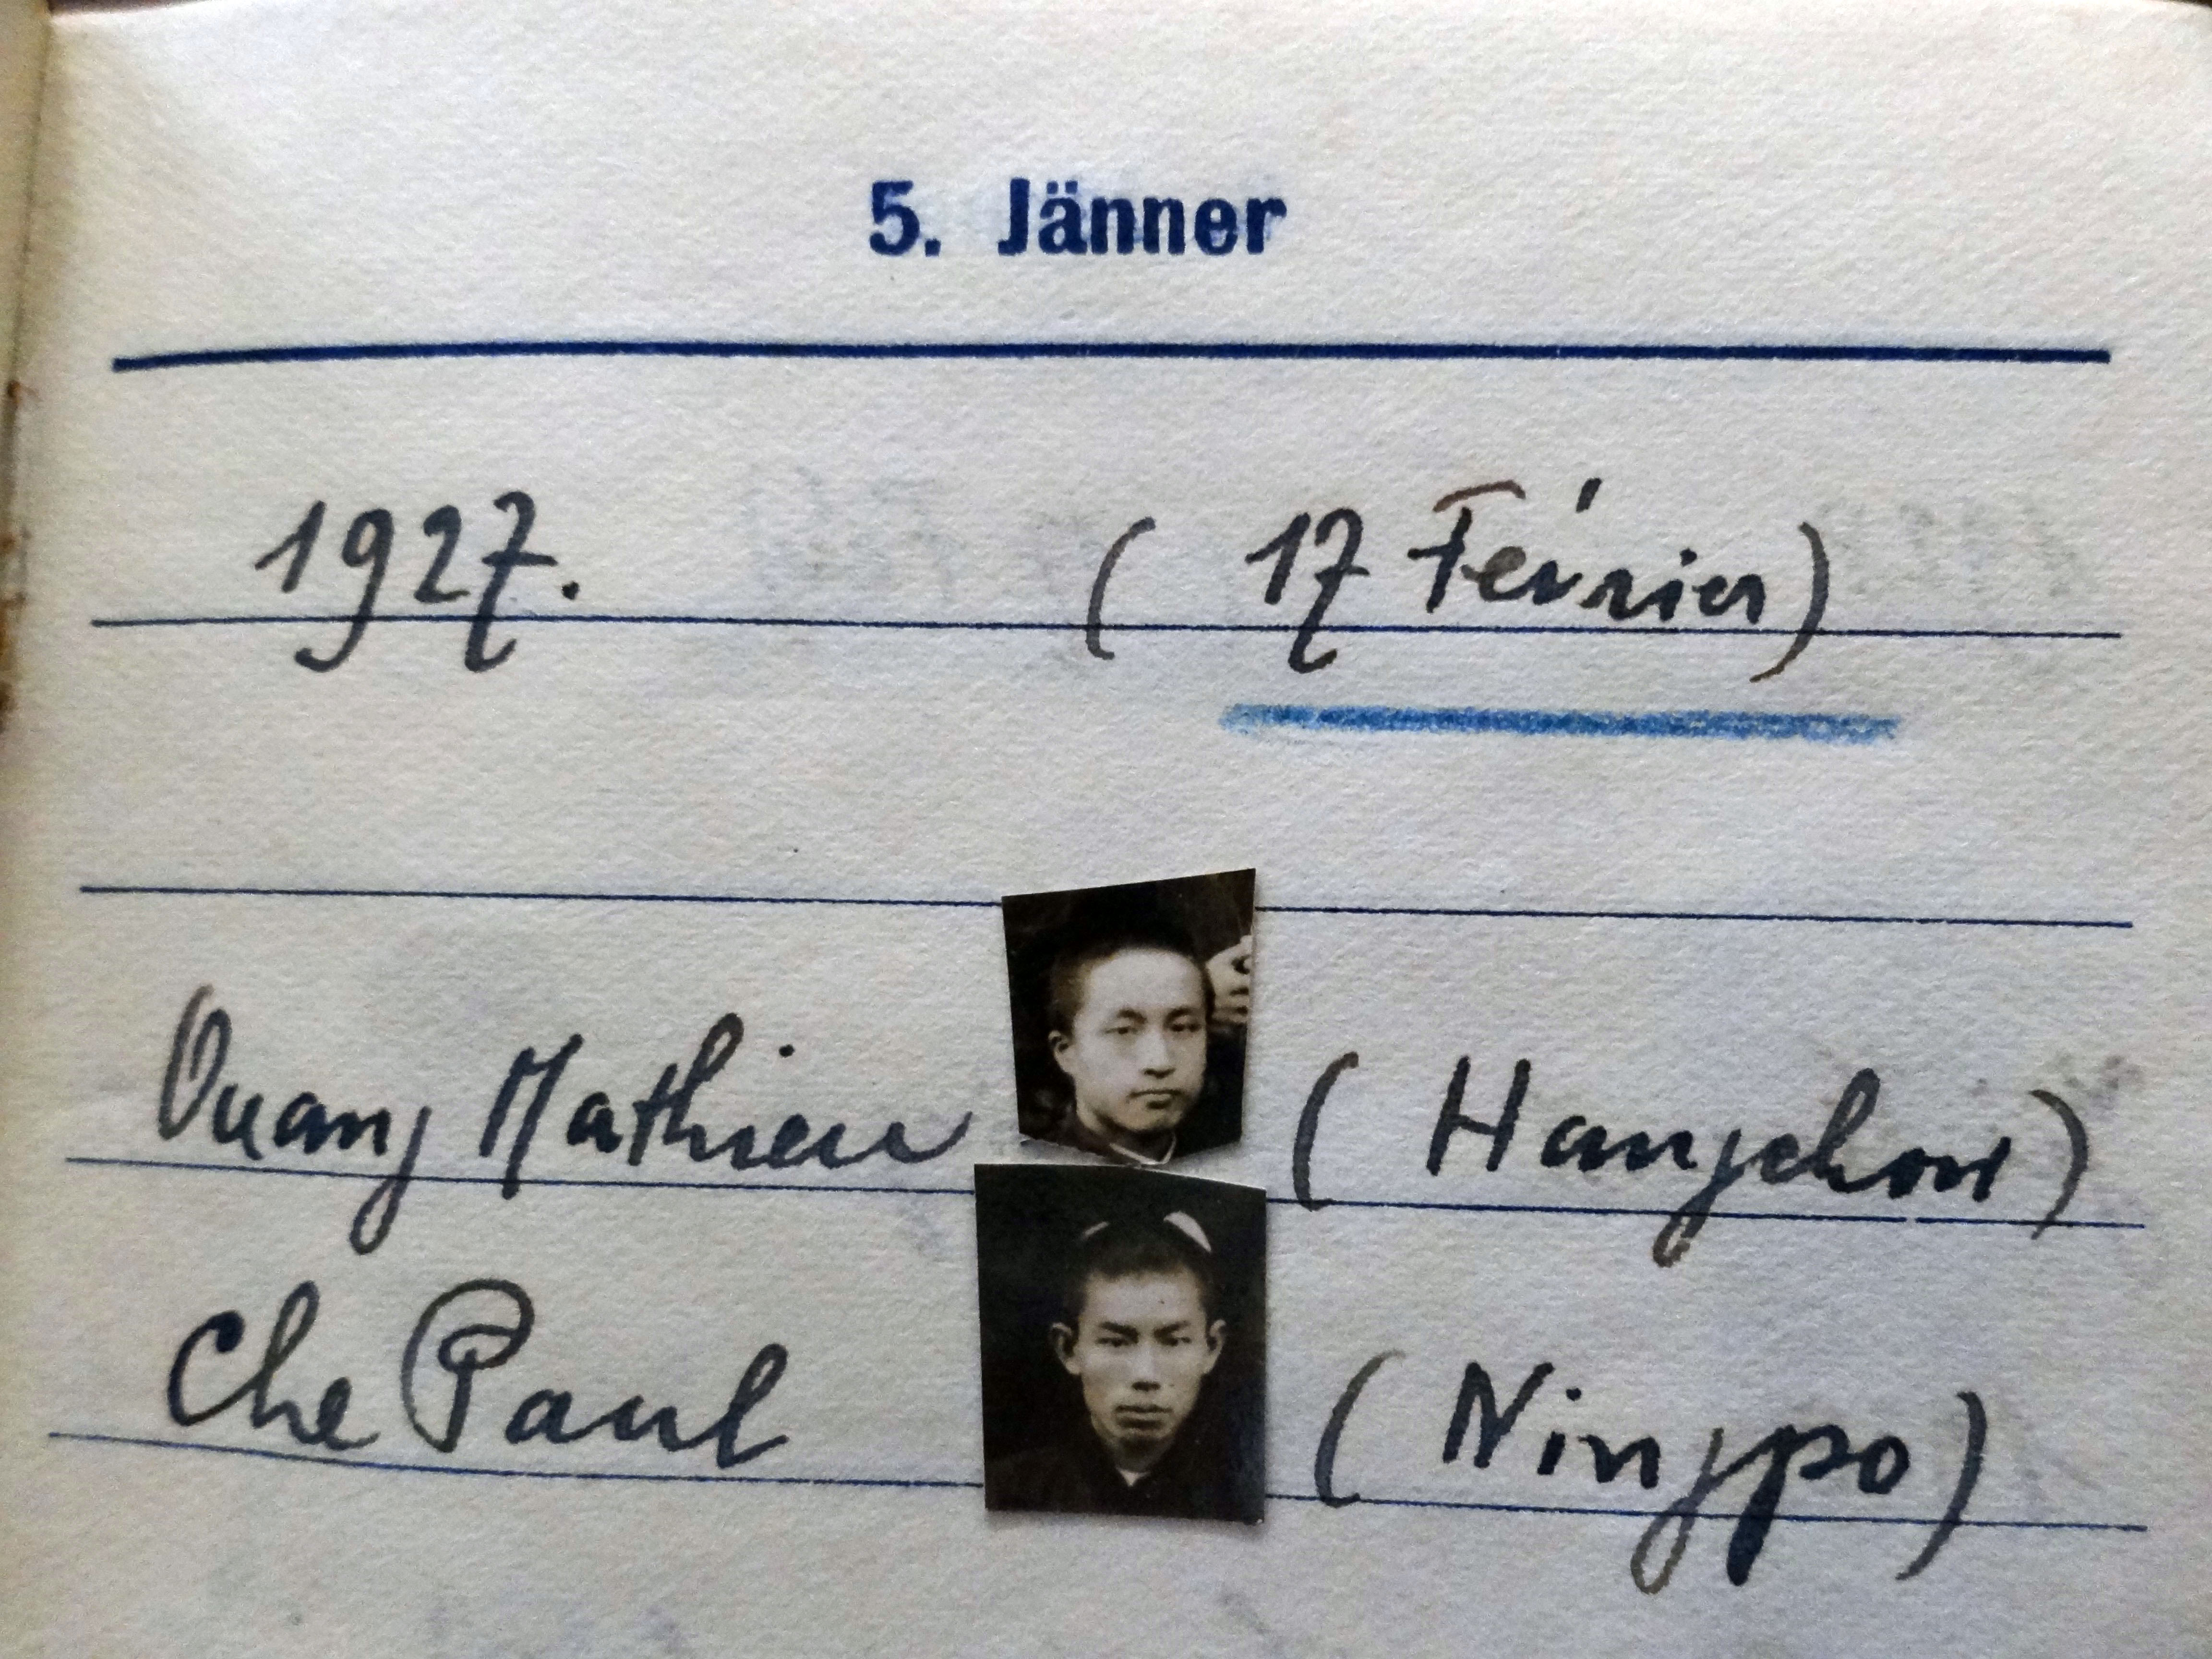 5. Jänner
1927. ( 17 Février )
Ouang Mathieu ( Hangchow )
Che Paul ( Ningpo )